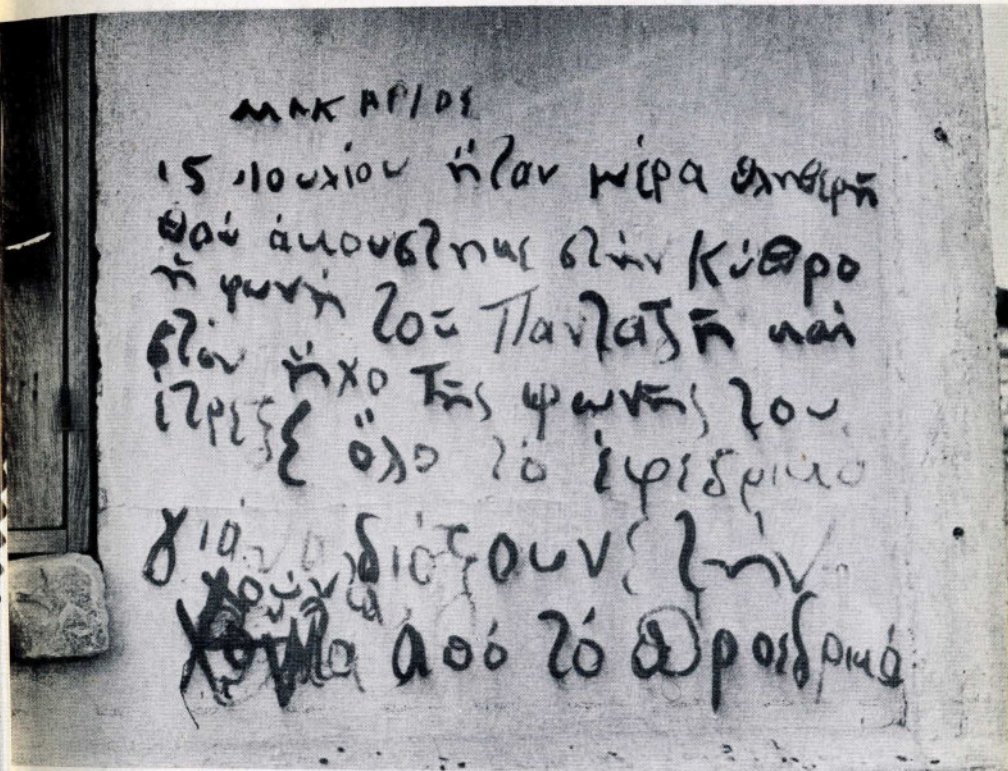 ΜΑΚΑΡΙΟΣ
15 Ιουλίου ἤταν μέρα θλιβερῆ
ποὺ ἀκούστηκε στὴν Κύπρο
ἡ φωνὴ τοῦ Πανταζῆ καὶ
στὸν ἦχο τῆς φωνῆς του
ἔτρεξε ὅλο τὸ ἐφεδρικο
γιὰ νὰ διόξουν τὴν
χούντα ἀπό τό προεδρικό